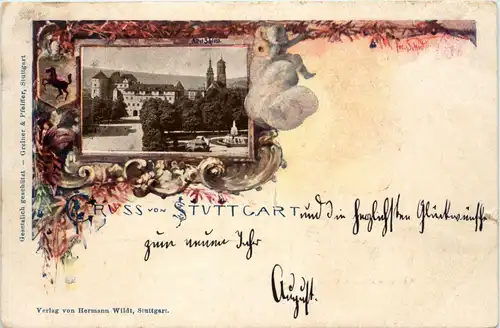 Altes Schloss
Gesetzlich geschützt. — Greiner & Pfeiffer, Stuttgart
GRUSS VON STUTTGART und die herzlichsten Glückwünsche
zum neuen Jahr
August.
Verlag von Hermann Wildt, Stuttgart.